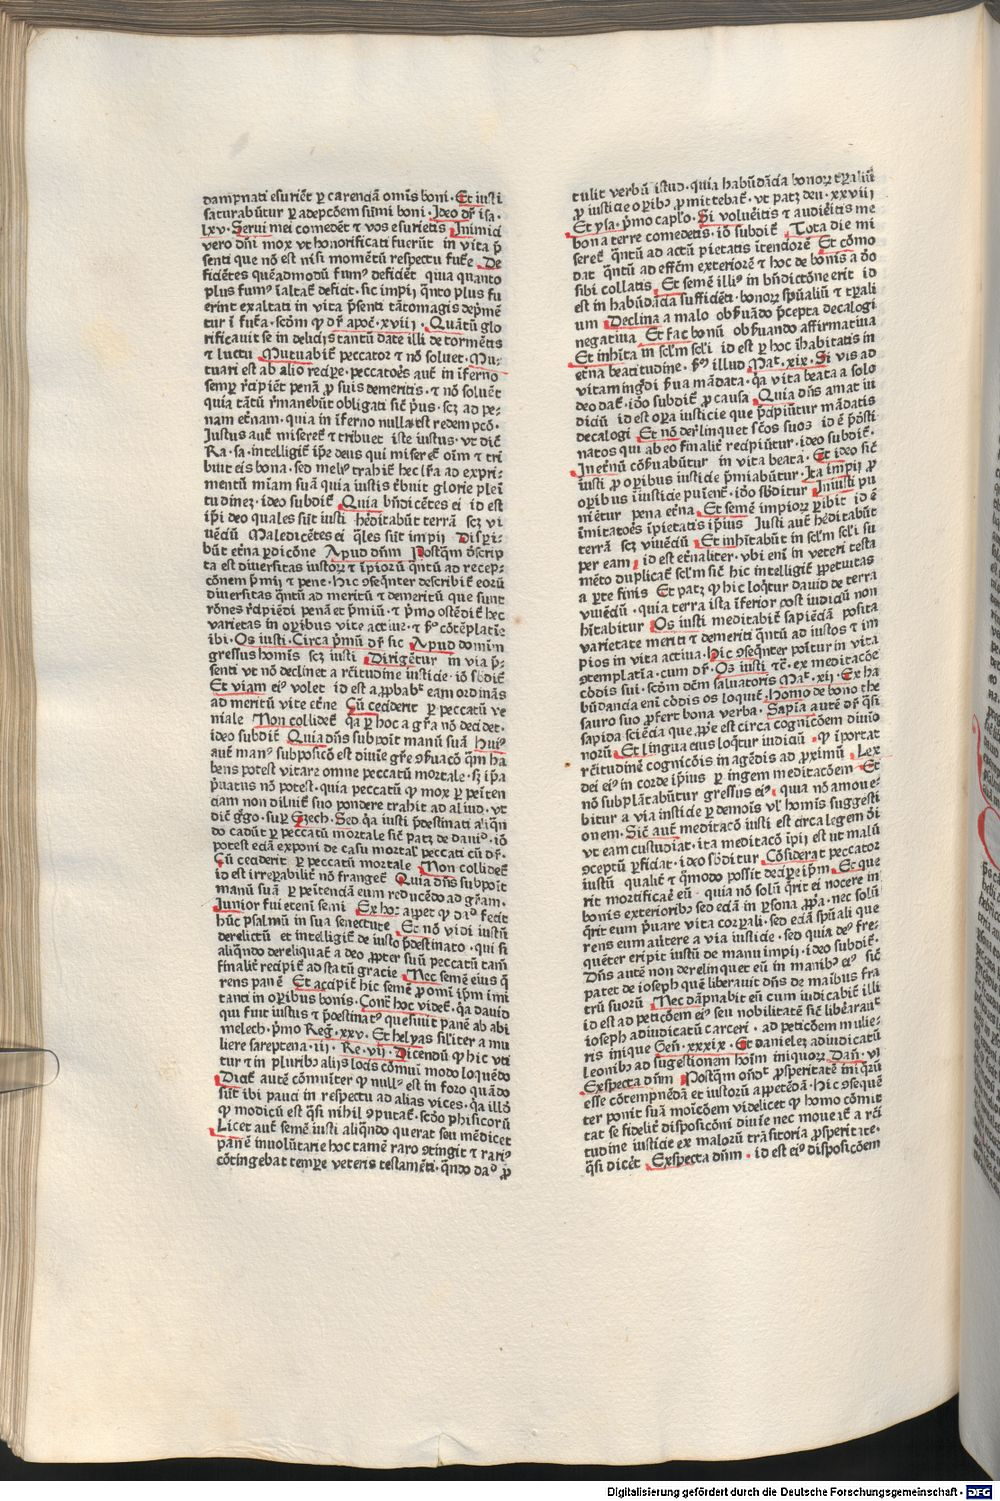 dampnati esuriẽt ꝑ carenciã omĩs boni · Et iusti
saturabũtur ꝑ adepcõem sũmi boni · Ideo dr̃ isa ·
lxv · Serui mei comedẽt ⁊ vos esurietis Inimici
vero dñi mox vt honorificati fuerũt in vita p̃
senti que nõ est nisi momẽtũ respectu futẽ · De
ficiẽtes quẽadmodũ fumꝰ deficiẽt quia quanto
plus fumꝰ ĩaltat̃ deficit · sic impij q̃nto plus fu
erint exaltati in vita p̃senti tãtomagis dep̃mẽ
tur ĩ fut̃a · scðm ꝙ dr̃ apoc̃ · xviij · Quãtũ glo
rificauit se in delicijs tantũ date illi de tormẽtis
⁊ luctu Mutuabit̃ peccator ⁊ nõ soluet · Mu⸗
tuari est ab alio recipe · peccatores aut̃ in ĩferno
semꝑ r̃cipiẽt penã ꝓ suis demeritis · ⁊ nõ soluẽt
quia tãtũ r̃manebũt obligati sic̃ p̃us · scꝫ ad pe⸗
nam et̃nam · quia in ĩferno nulla est redempcõ ·
Justus aut̃ miseret̃ ⁊ tribuet iste iustus · vt dic̃
Ra · sa · intelligit̃ ip̃e deus qui miseret̃ oĩm ⁊ tri
buit eis bona · sed melꝰ trahit̃ hec lr̃a ad expri⸗
mentũ miam suã quia iustis t̃buit glorie pleĩ
tudinez · ideo subdit̃ Quia bñdicẽtes ei id est
ip̃i deo quales sũt iusti hẽditabũt terrã sez vi
uẽciũ Maledicẽtes ei q̃les sũt impij Disꝑi⸗
bũt et̃na ꝑdicõne Apud dñm Postq̃m ðscrip
ta est diuersitas iustoꝝ ⁊ ĩpioꝝũ q̃ntũ ad recep⸗
cõnem p̃mij ⁊ pene · hic ꝯseq̃nter describit̃ eorũ
diuersitas q̃ntũ ad meritũ ⁊ demeritũ que sunt
rõnes r̃cipiẽdi penã et p̃miũ · ⁊ p̃mo ostẽdit̃ hec
varietas in oꝑibus vite actiue · ⁊ p̃o cõtẽplatiẽ
ibi · Os iusti · Circa p̃mũ dr̃ sic Apud dominm
gressus homĩs scꝫ iusti Dirigẽtur in via p̃⸗
senti vt nõ declinet a rc̃itudine iusticie · iõ sb̃dit̃
Et viam eiꝰ volet id est a ꝓbabᵗ eam ordinãs
ad meritũ vite et̃ne Cũ ceciderit ꝑ peccatũ ve
niale Non collidet̃ q̃a ꝑ hoc a gr̃a nõ decidet ·
ideo subdit̃ Quia dñs subpoĩt manũ suã huiꝰ
aut̃ manꝰ subposicõ est diuĩe gr̃e ꝯs̃uacõ q̃m ha
bens potest vitare omne peccatũ mortale · sꝫ ip̃a
p̃uatus nõ potest · quia peccatũ ꝙ mox ꝑ peĩten
ciam non diluit̃ suo pondere trahit ad aliud · vt
dic̃ gr̃go · suꝑ Ezech · Sed q̃a iusti p̃destinati aliq̃n
do cadũt ꝑ peccatũ mortale sic̃ patꝫ de dauid · iõ
potest eciã exponi de casu mortalꝭ peccati cũ dr̃ ·
Cũ ceciderit ꝑ peccatũ mortale Non collidet̃
id est irreꝑabilit̃ nõ franget̃ Quia dñs subpoĩt
manũ suã ꝑ peĩtenciã eum reducẽdo ad gr̃am ·
Junior fui eteni señi Ex hoc apꝑet ꝙ dađ fecit
hũc psalmũ in sua senectute Et nõ vidi iustũ
derelictũ et intelligit̃ de iusto p̃destinato · qui si
aliq̃ndo dereliquat̃ a deo ꝓpter suũ peccatũ tam̃
finalit̃ recipit̃ ad statũ gracie Nec semẽ eius q̃
rens panẽ Et accipit̃ hic semẽ ꝓ omĩ ip̃m imi
tanti in oꝑibus bonis · Cont̃ hoc videt̃ · q̃a dauid
qui fuit iustus ⁊ p̃destinatꝰ quesiuit panẽ ab abi
melech · p̃mo Reg̃ · xxv · Et helyas silĩter a mu
liere sareptena · iij · Re · vij · Dicendũ ꝙ hic vti
tur ⁊ in pluribꝰ alijs locis cõmui modo loquẽdo
Dicit̃ autẽ cõmuĩter ꝙ nullꝰ est in foro quãdo
sũt ibi pauci in respectu ad alias vices · q̃a illð
ꝙ modicũ est q̃si nihil ꝯputat̃ · scðo phisicorũ
Licet aut̃ semẽ iusti aliq̃ndo querat seu mẽdicet
panẽ inuolũtarie hoc tamẽ raro ꝯtingit ⁊ rariꝰ
cõtingebat tempe veteris testamẽti · q̃ndo dađ ꝓ
tulit verbũ istud · quia habũdãcia bonoꝝ tꝑaliũ
ꝓ iusticie oꝑibꝰ ꝓmittebat̃ · vt patꝫ deu · xxviij
Et ysa · p̃mo capl̃o · Si volueĩtis ⁊ audiẽitis me
bona terre comedetis · iõ subdit̃ Tota die mi
seret̃ q̃ntũ ad actũ pietatis ĩtendorẽ Et cõmo
dat q̃ntũ ad effc̃m exteriorẽ ⁊ hoc de bonis a ðo
sibi collatis Et semẽ illiꝰ in bñdictõne erit id
est in habũdãcia sufficiẽti · bonoꝝ spũaliũ ⁊ tꝑali
um Declina a malo obs̃uãdo p̃cepta decalogi
negatiua Et fac bonũ obs̃uando affirmatiua
Et inhĩta in sclm̃ scl̃i id est ꝑ hoc ĩhabitatis in
et̃na beatitudine · p̃ꝰ illud Mat̃ · xix · Si vis ad
vitam ingr̃di s̃ua mãdata · q̃a vita beata a solo
deo dat̃ · iðo subdit̃ ꝓ causa Quia dñs amat iu
diciũ id est oꝑa iusticie que p̃cipiũtur mãdatis
decalogi Et nõ der̃linquet sc̃os suos id ẽ p̃dsti
natos qui ab eo finalit̃ recipiũtur · ideo subdit̃ ·
Inet̃nũ cõs̃uabũtur in vita beata · Et ideo sic̃
iusti ꝓ oꝑibus iusticie p̃miabũtur · Ita impij ꝓ
oꝑibus ĩiusticie puĩent̃ · iðo sb̃ditur Iniusti pu
niẽtur pena et̃na Et semẽ impioꝝ ꝑibit id ẽ
ĩmitatoẽs ĩpietatis ip̃ius Iusti aut̃ heditabũt
terrã scꝫ viuẽciũ Et inhĩtabũt in sclm̃ scl̃i su
per eam id est et̃naliter · vbi enĩ in veteri testa
mẽto duplicat̃ sclm̃ sic̃ hic intelligit̃ ꝑpetuitas
a ꝑte finis Et patꝫ ꝙ hic loq̃tur dauid de terra
viuẽciũ · quia terra ista ĩferior post iudiciũ non
hĩtabitur Os iusti meditabit̃ sapiẽciã posita
varietate meriti ⁊ demeriti q̃ntũ ad iustos ⁊ im
pios in vita actiua · hic ꝯseq̃nter poĩtur in vita
ꝯtemplatia · cum dr̃ · Os iusti ⁊c̃ · ex meditacõe
cõdis sui · scðm dc̃m saluatoris Mat̃ · xij · Ex ha
bũdancia enĩ cõdis os loquit̃ · Homo de bono the
sauro suo ꝓfert bona verba · Sapia autẽ dr̃ q̃si
sapida sciẽcia que ꝓpe est circa cognicõem diuĩo
norũ Et lingua eius loq̃tur iudiciũ · ꝙ ĩportat
rc̃itudinẽ cognicõis in agẽdis ad ꝓximũ Lex
dei eiꝰ in corde ip̃ius ꝑ ingem meditacõem Et
nõ subplãtabũtur gressus eiꝰ quia nõ amoue⸗
bitur a via iusticie ꝑ demoĩs vl̃ homĩs suggesti
onem · Sic̃ aut̃ meditacõ iusti est circa legem ði
vt eam custodiat · ita meditacõ ĩpij est ut malũ
ꝯceptũ ꝑficiat · ideo sb̃ditur Cõsiderat peccator
iustũ qualit̃ ⁊ q̃modo possit deciꝑe ip̃m Et que
rit mortificare eũ quia nõ solũ q̃rit ei nocere in
bonis exterioribꝰ sed eciã in ꝑsona ꝓp̃a · nec solũ
q̃rit eum p̃uare vita corꝑali · sed eciã spũali que
rens eum aũtere a via iusticie · sed quia deꝰ fre⸗
quẽter eripit iustũ de manu impij · ideo subdit̃ ·
Dñs autẽ non derelinquet eũ in manibꝰ eiꝰ sic̃
patet de ioseph quẽ liberauit dñs de maibus fra
trũ suorũ Nec dãpnabit eũ cum iudicabit̃ illi
id est ad peticõem eiꝰ seu nobilitatẽ sic̃ libẽrauit
ioseph adiudicatũ carceri · ad peticõem mulie⸗
ris inique Gen̄ · xxxix · Et danielez adiudicatũ
leonibꝰ ad sugestionam hoĩm iniquorꝫ Dañ · vi
Exspecta dñm Postq̃m oñdit ꝓsꝑitatẽ iniq̃rũ
esse cõtempnẽdã et iustorũ appetẽdã · hic ꝯsequẽ
ter ponit suã moĩcõem videlicet ꝙ homo cõmit
tat se fidelit̃ disposicõni diuĩe nec moueat̃ a rc̃i
tudine iusticie ex malorũ trãsitoria ꝓsꝑitate ·
q̃si dicẽt Exspecta dñm · id est eiꝰ disposicõem
Digitalisierung gefördert durch die Deutsche Forschungsgemeinschaft - DFG